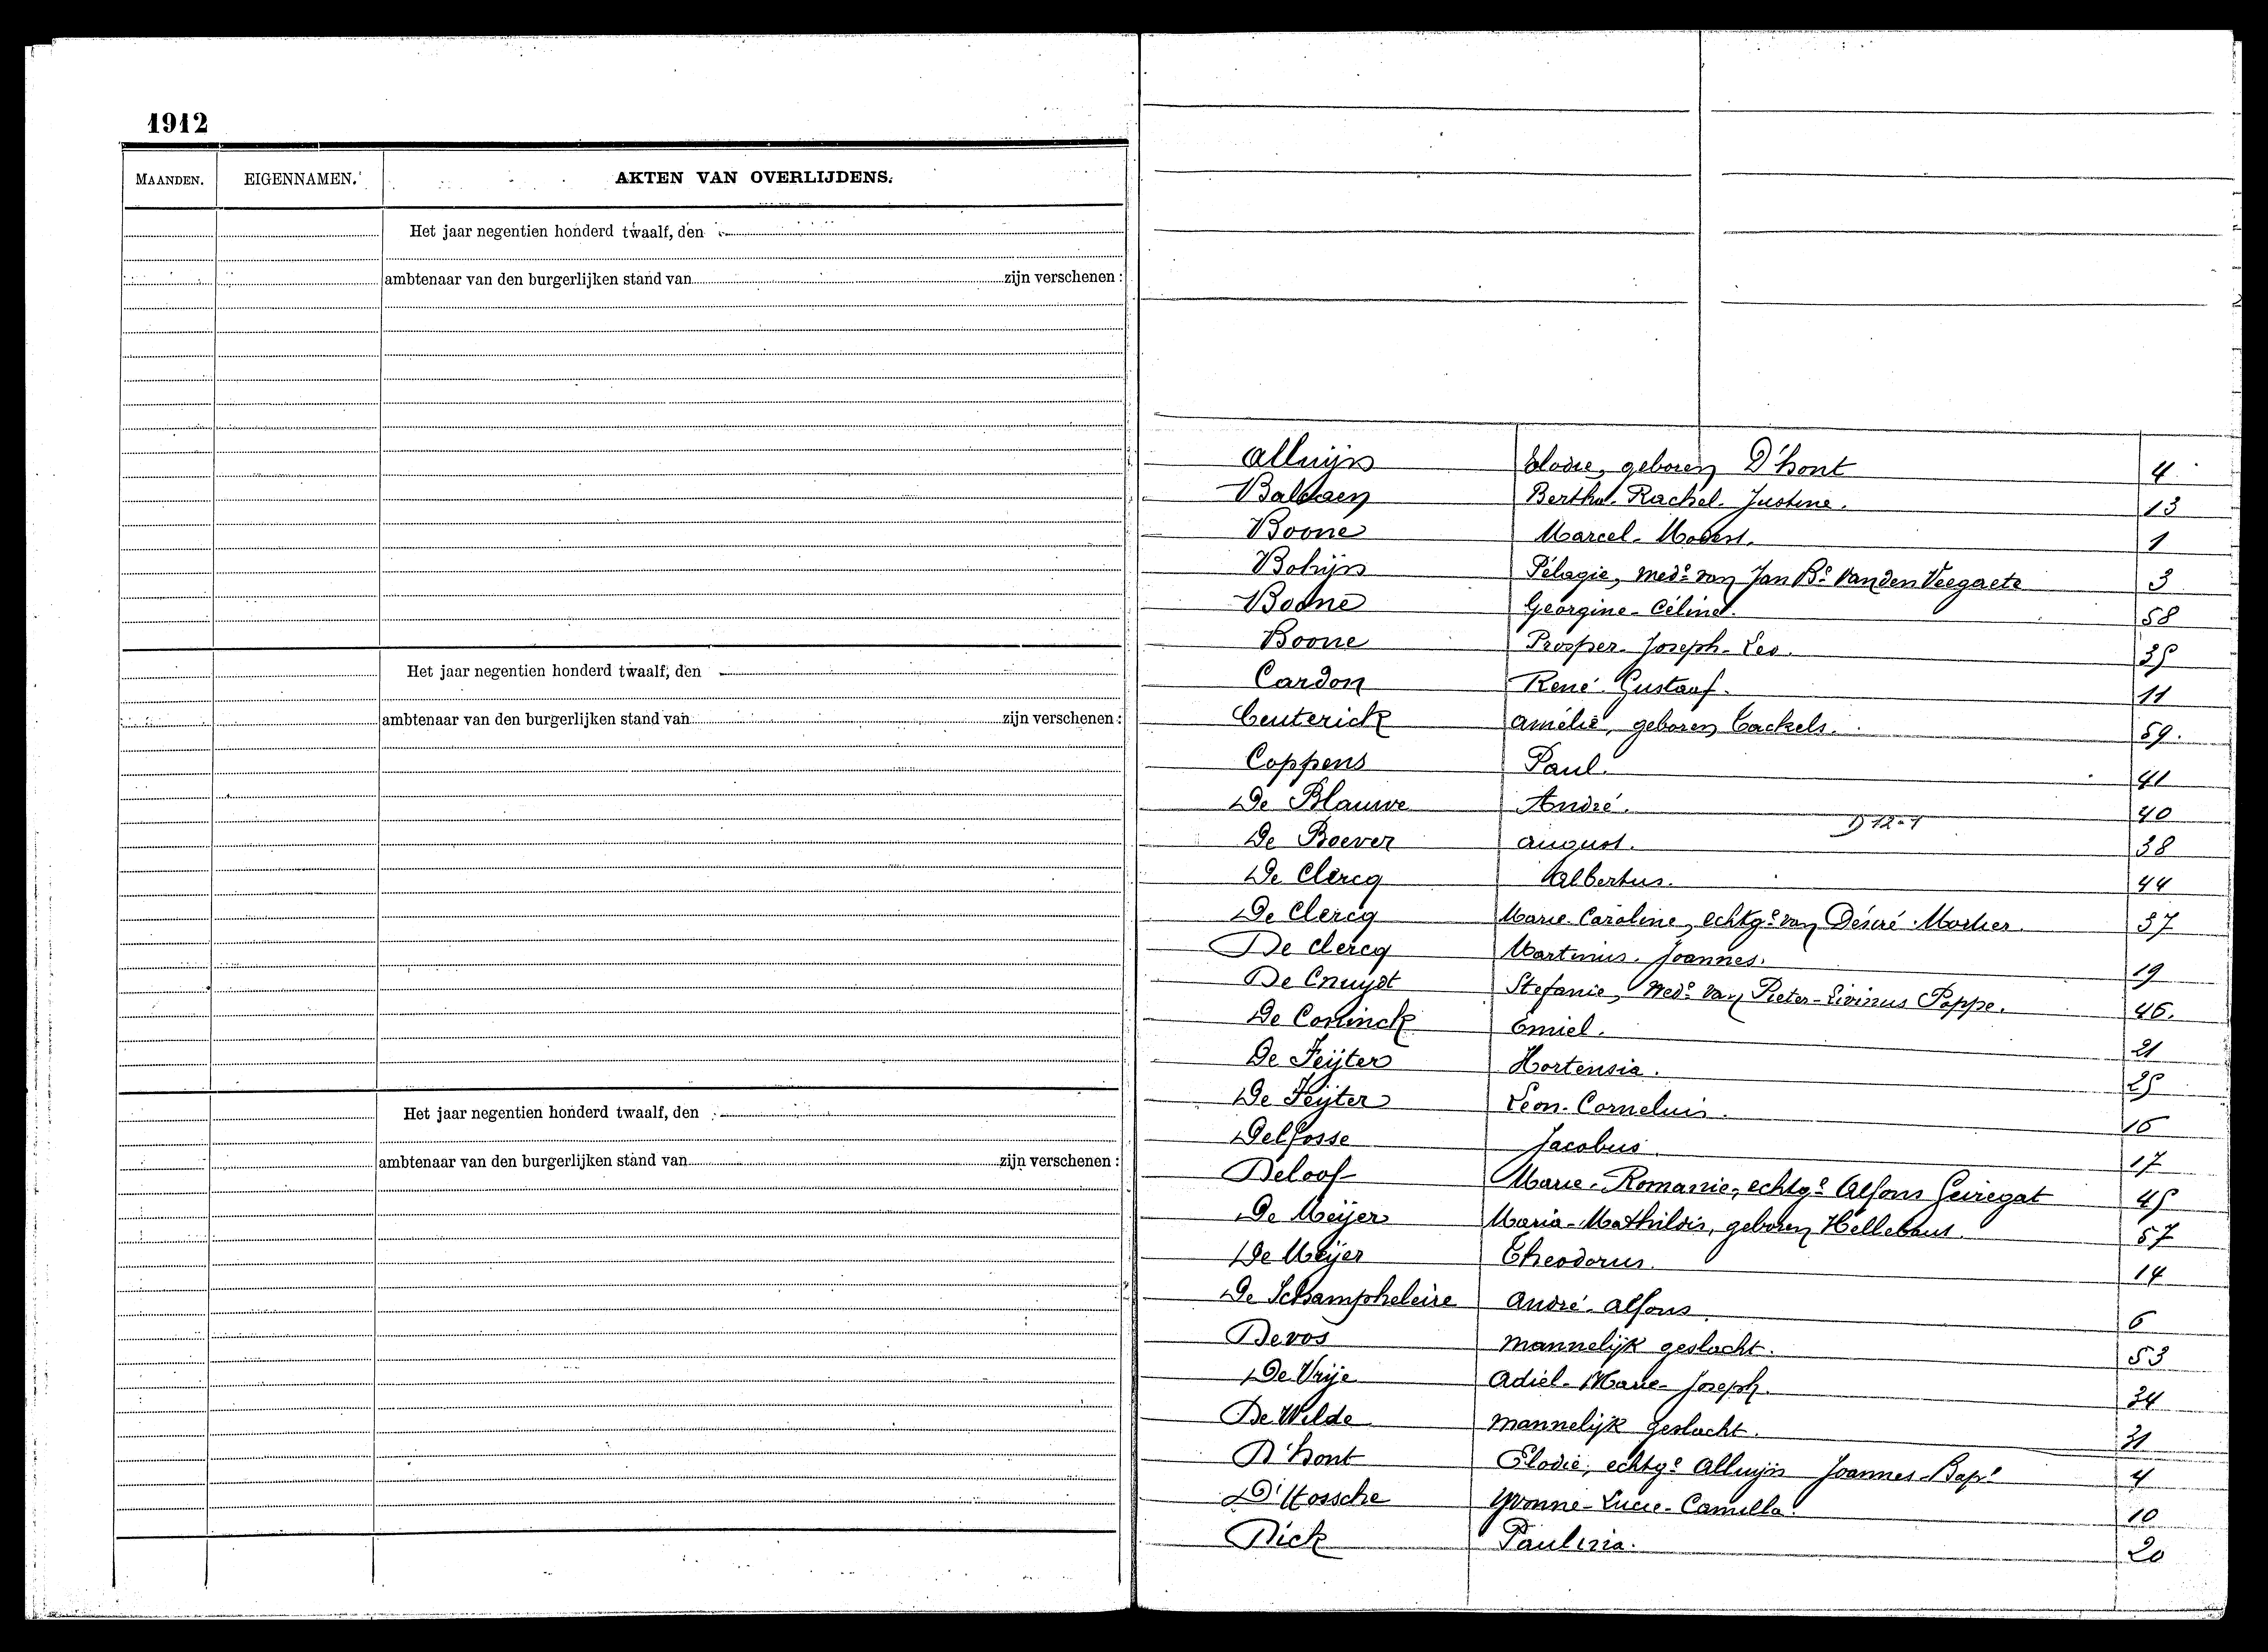 1912
MAANDEN. EIGENNAMEN. AKTEN VAN OVERLIJDENS.
Het jaar negentien honderd twaalf, den
ambtenaar van den burgerlijken stand van zijn verschenen :
Het jaar negentien honderd twaalf, den
ambtenaar van den burgerlijken stand van zijn verschenen :
Het jaar negentien honderd twaalf, den
ambtenaar van den burgerlijken stand van zijn verschenen :
Alluijn Elodie, geboren D'hont 4
Baldaen Bertha-Rachel-Justine. 13
Boone Marcel-Modest. 1
Bohijn Pélagie, wede van Jan Bte Vanden Veegaete 3
Boone Georgine-Céline. 58
Boone Prosper-Joseph-Leo. 35
Cardon René-Gustaaf. 11
Ceuterick Amélie, geboren Cackels. 59.
Coppens Paul. 41
De Blauwe André. 40
D 12-1
De Boever August. 38
De Clercq Albertus. 44
De Clercq Marie-Caroline, echtge van Désiré Mortier. 37
De Clercq Martinus-Joannes. 19
De Cnuydt Stefanie, Wede van Pieter-Livinus Poppe. 46.
De Coninck Emiel. 21
De Feijter Hortensia. 25
De Feijter Leon-Cornelius. 16
Delfosse Jacobus 17
Deloof Marie-Romanie, echtge Alfons Geiregat 45
De Meijer Maria-Mathildis, geboren Hellebaut. 57
De Meijer Theodorus. 14
De Schampheleire André-Alfons 6
Devos mannelijk geslacht. 53
De Vrije Adiel-Marie-Joseph. 34
De Wilde mannelijk geslacht. 31
D'hont Elodie, echtge Alluijn Joannes-Bapt 4
D'Hossche Yvonne-Lucie-Camilla. 10
Dick Paulina. 20